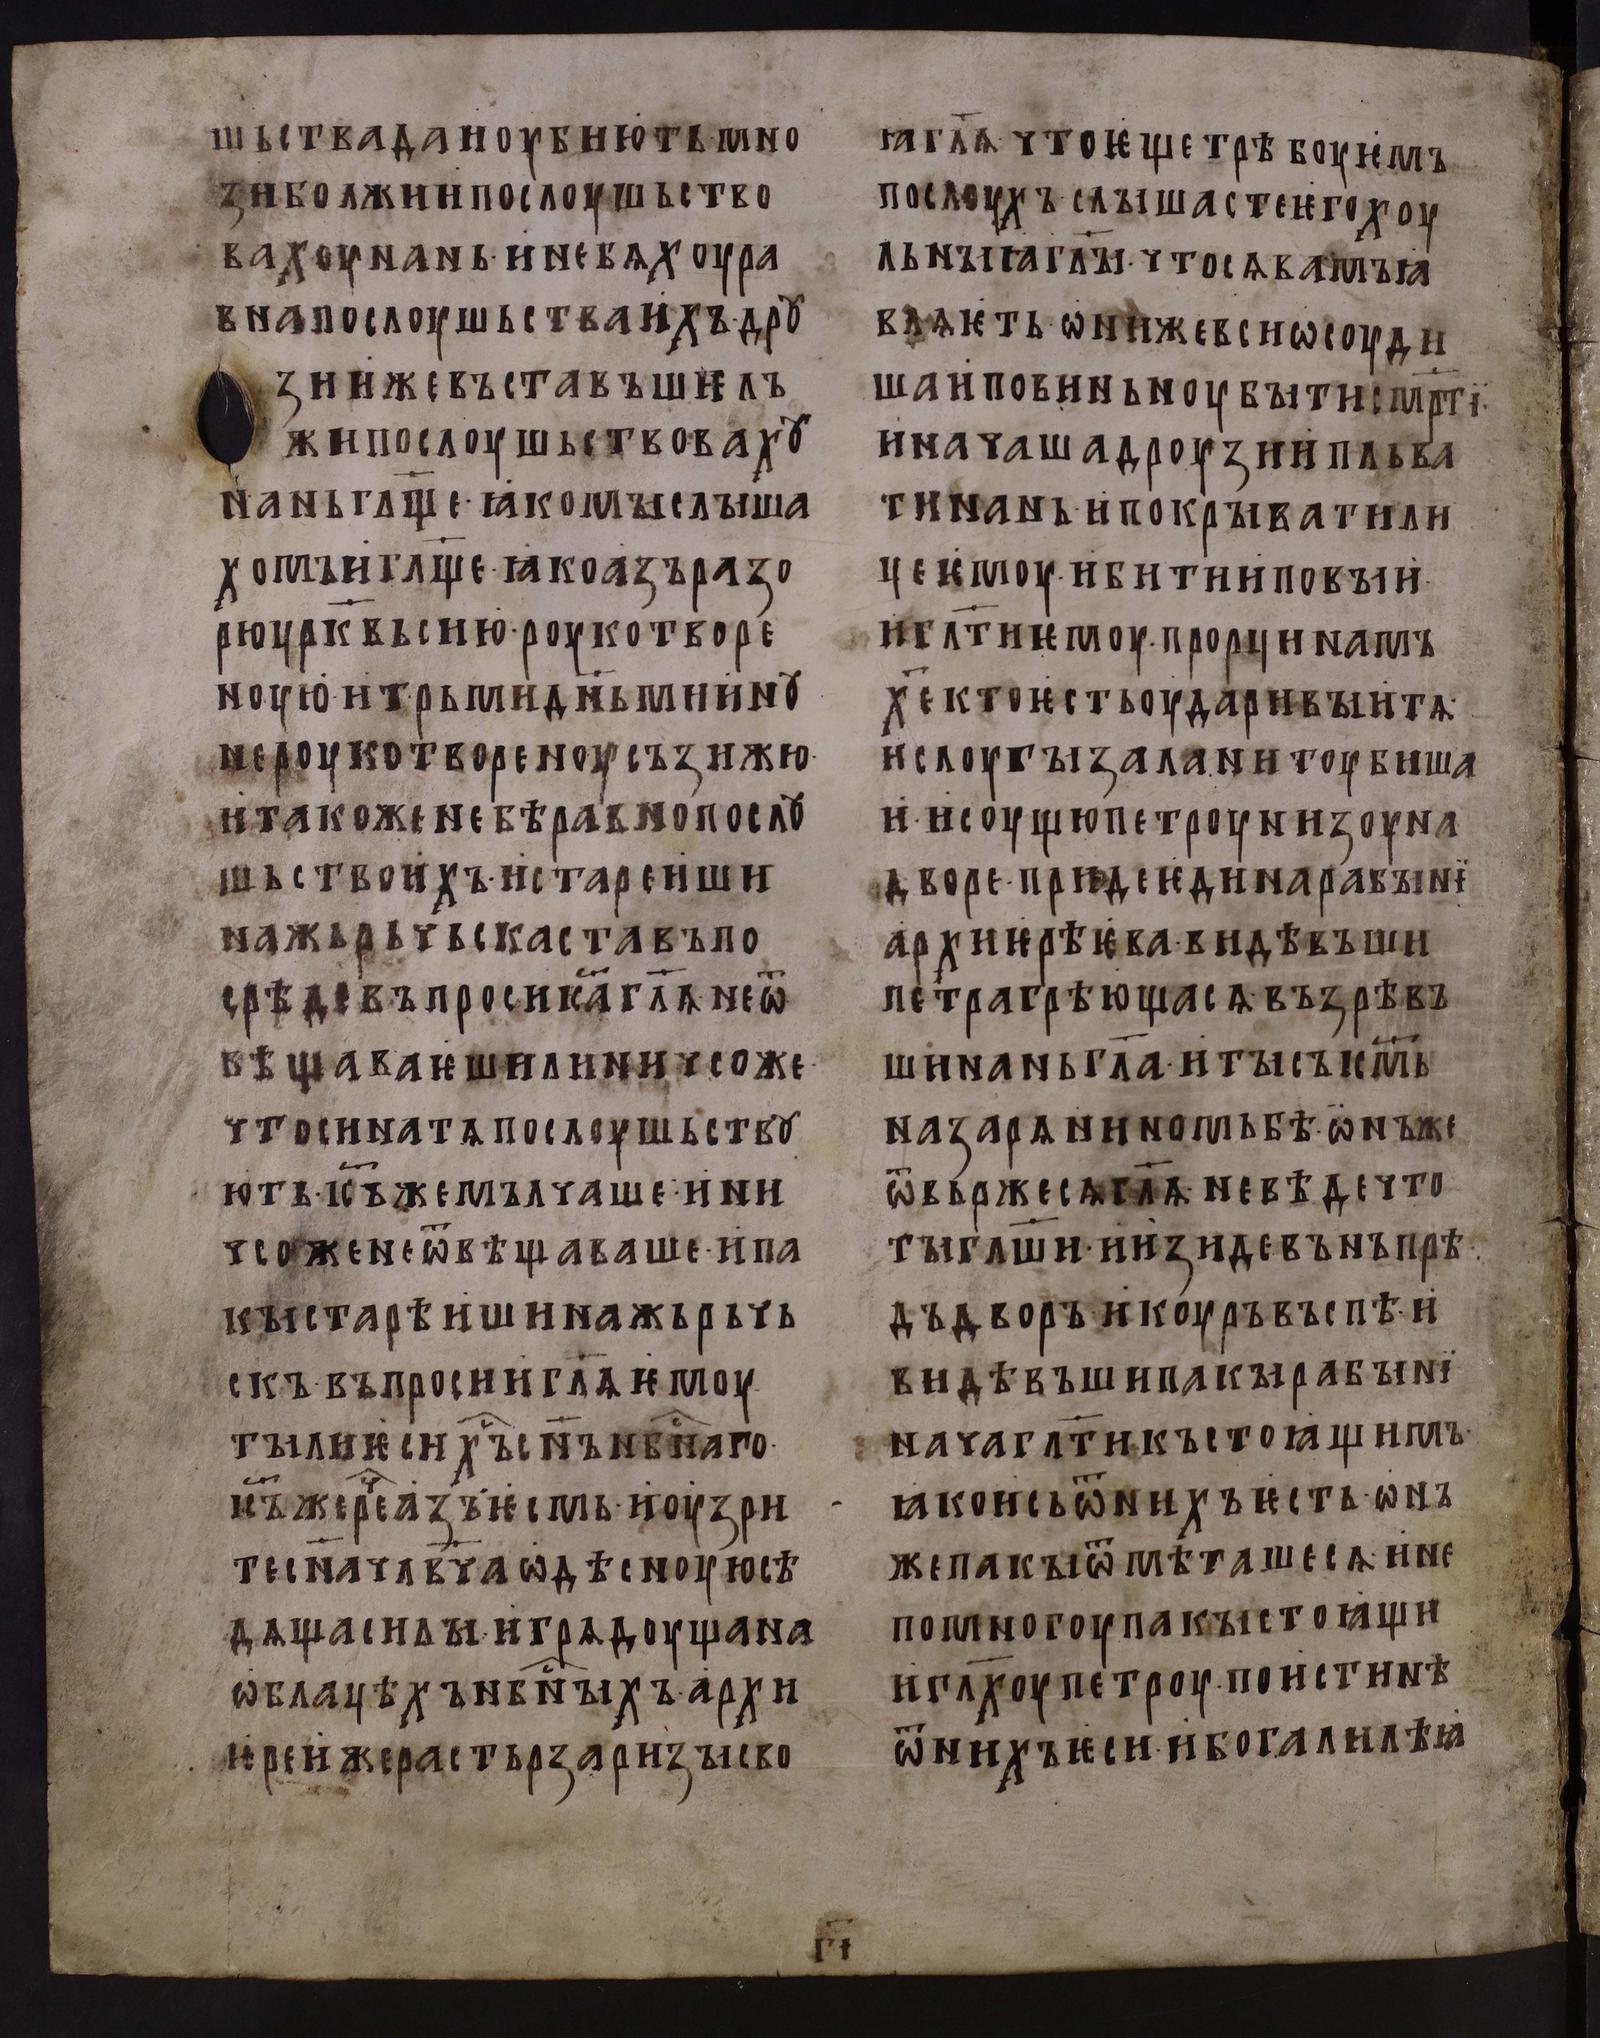 шьстваданоубиють·мно
зиболжиипослоушьство
вахоунань·инебѧхоура
внапослоушьстваихъ·дрꙋ
зиижевъставъшиѥлъ
жипослоушьствовахꙋ
наньгл҃ще·ꙗкомыслыша
хомъигл҃ще·ꙗкоазъразо
рюцр҃квьсию·роукотворе
ноую·итрьмидн҃ьмиинꙋ
нероукотвореноусъзижю·
итакоженебѣравнопослꙋ
шьствоихъ·истареиши
нажьрьчьскаставъпо
срѣдевъпросиіса҃гл҃ѧ·неѿ
вѣщаваѥшилиничсоже·
чтосинатѧпослоушьствꙋ
ють·іс҃ъжемълчаше·ини
чсоженеѿвѣщаваше·ипа
кыстарѣишинажьрьчь
скъ·въпросиигл҃ѧѥмоу
тылиѥсихс҃ъсн҃ънбс҃наго·
іс҃ъжереч҃еазъѥсмь·иоузри
тесн҃ачлв҃чаѡдѣсноуюсѣ
дѧщасилы·игрѧдоущана
ѡблацѣхънбс҃ныхъ·архи
ѥреижерастьрзаризысво
ꙗгл҃ѧ чтоѥщетрѣбоуѥмъ
послоухъ·слышастеѥгохоу
льныꙗгл҃ы·чтосѧвамъꙗ
влѧѥть·ѡнижевсиѡсоуди
шаиповиньноубытисмр҃тї·
иначашадроузииплька
тинань·ипокрыватили
цеѥмоу·ибитииповыи·
игл҃тиѥмоу·прорцинамъ
хе҃ктоѥстьоударивыитѧ·
ислоугызаланитоубиша
и·исоущюпетроунизоуна
дворе·придеѥдинарабынї
архиѥрѣѥва·видѣвъши
петрагрѣющасѧ·възрѣвъ
шинаньгл҃а·итысъіс҃мь
назарѧниномьбѣ·ѡнъже
ѿвьржесѧгл҃ѧ·невѣдечто
тыгл҃ши·иизидевънъпрѣ
дъдворъ·икоуръвъспѣ·и
видѣвъшипакырабынї
начагл҃тикъстоꙗщимъ·
ꙗкоисьѿнихъѥсть·ѡнъ
жепакыѿмѣташесѧ·ине
помногоупакыстоꙗщи
игл҃хоупетроу·поистинѣ
ѿнихъѥси·ибогалилѣꙗ
гі҃